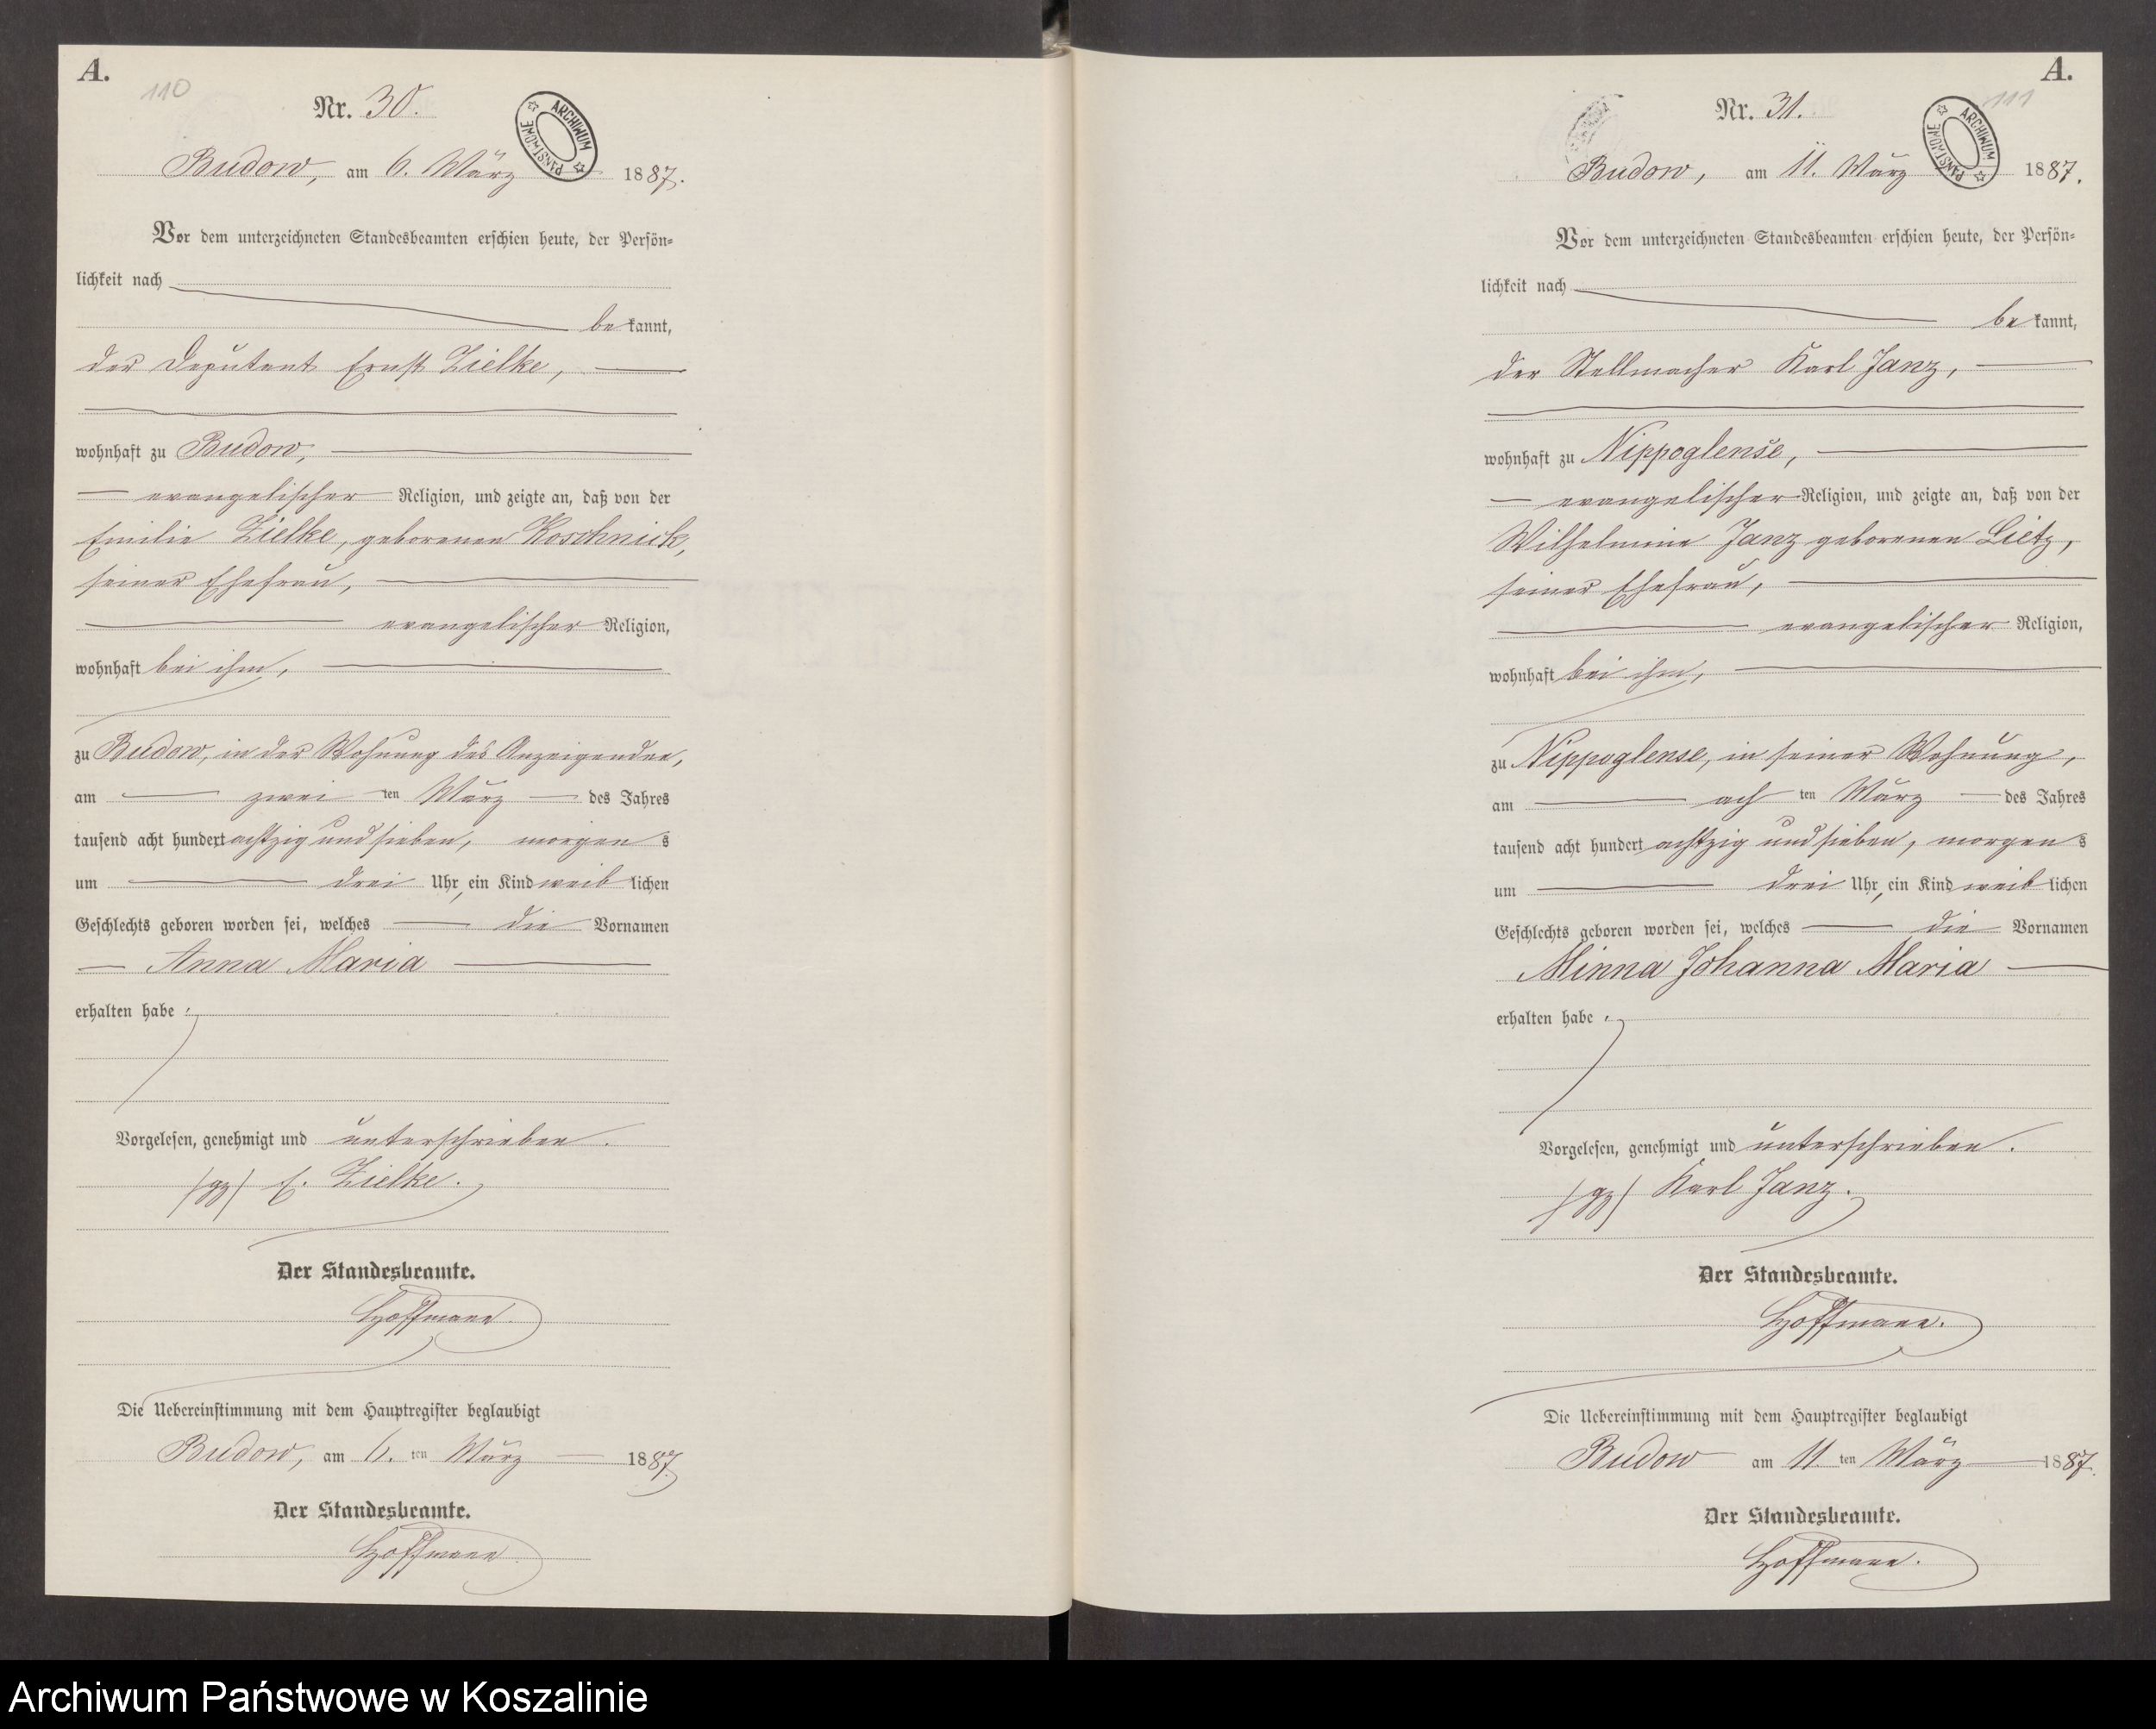 A.
110
Nr. 30.
ARCHIWUM PAŃSTWOWE
Budow, am 6. März 1887.
Vor dem unterzeichneten Standesbeamten erschien heute, der Persön=
lichkeit nach
be kannt,
der Deputant Ernst Zielke,
wohnhaft zu Budow,
evangelischer Religion, und zeigte an, daß von der
Emilie Zielke, geborenen Koschnick,
seiner Ehefrau,
evangelischer Religion,
wohnhaft bei ihm,
zu Budow, in der Wohnung des Anzeigenden,
am zwei ten März des Jahres
tausend acht hundert achtzig und sieben, morgen s
um drei Uhr, ein Kind weib lichen
Geschlechts geboren worden sei, welches die Vornamen
Anna Maria
erhalten habe.
Vorgelesen, genehmigt und unterschrieben.
/gz/ E. Zielke.
Der Standesbeamte.
Hoffmann.
Die Uebereinstimmung mit dem Hauptregister beglaubigt
Budow, am 6. ten März 1887.
Der Standesbeamte.
Hoffmann
A.
111
Nr. 31.
ARCHIWUM PAŃSTWOWE
Budow, am 11. März 1887.
Vor dem unterzeichneten Standesbeamten erschien heute, der Persön=
lichkeit nach
be kannt,
der Stellmacher Karl Janz,
wohnhaft zu Nippoglense,
evangelischer Religion, und zeigte an, daß von der
Wilhelmine Janz geborenen Lietz,
seiner Ehefrau,
evangelischer Religion,
wohnhaft bei ihm,
zu Nippoglense, in seiner Wohnung,
am ach ten März des Jahres
tausend acht hundert achtzig und sieben, morgen s
um drei Uhr, ein Kind weib lichen
Geschlechts geboren worden sei, welches die Vornamen
Minna Johanna Maria
erhalten habe.
Vorgelesen, genehmigt und unterschrieben.
/gz/ Karl Janz.
Der Standesbeamte.
Hoffmann.
Die Uebereinstimmung mit dem Hauptregister beglaubigt
Budow am 11 ten März 1887.
Der Standesbeamte.
Hoffmann.
Archiwum Państwowe w Koszalinie